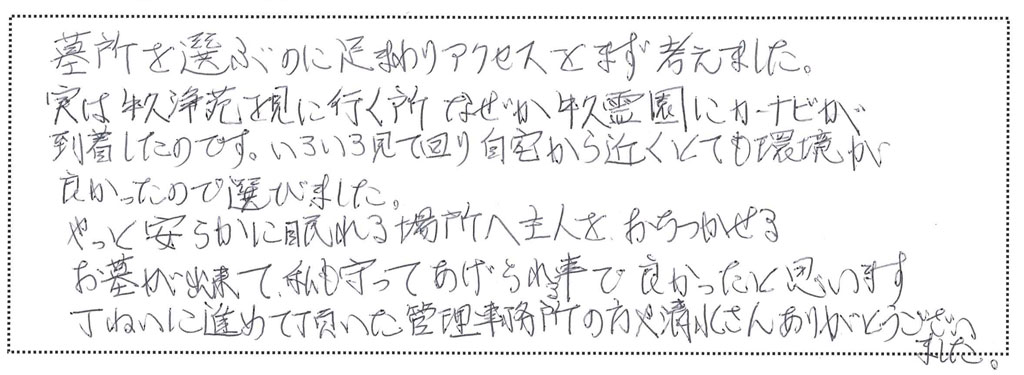 墓所を選ぶのに足まわりアクセスをまず考えました。
実は牛久浄苑を見に行く所なぜか牛久霊園にカーナビが
到着したのです。いろいろ見て回り自宅から近くとても環境が
良かったので選びました。
やっと安らかに眠れる場所へ主人を、おちつかせる
お墓が出来て、私も守ってあげられ事で良かったと思います
丁ねいに進めて頂いた管理事務所の方や清水さんありがとうござい
ました。